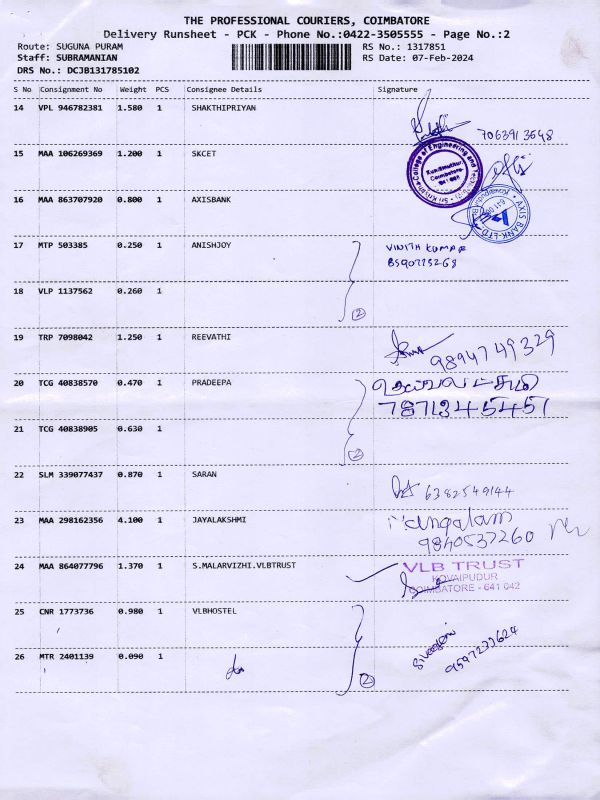 THE PROFESSIONAL COURIERS, COIMBATORE
Delivery Runsheet - PCK - Phone No.:0422-3505555 - Page No.:2
Route: SUGUNA PURAM RS No.: 1317851
Staff: SUBRAMANIAN RS Date: 07-Feb-2024
DRS No.: DCJB131785102
S No Consignment No Weight PCS Consignee Details Signature
14 VPL 946782381 1.580 1 SHAKTHIPRIYAN
7063913648
15 MAA 106269369 1.200 1 SKCET
Sri Krishna College of Engineering and Technology
Kuniamuthur
Coimbatore
641 008
16 MAA 863707920 0.800 1 AXISBANK
AXIS BANK LTD.
17 MTP 503385 0.250 1 ANISHJOY VINITH KUMAR
8590775268
18 VLP 1137562 0.260 1
2
19 TRP 7098042 1.250 1 REEVATHI
9894749329
20 TCG 40838570 0.470 1 PRADEEPA
7871345457
21 TCG 40838905 0.630 1
2
22 SLM 339077437 0.870 1 SARAN 6382549144
23 MAA 298162356 4.100 1 JAYALAKSHMI Mangalam
9840537260
24 MAA 864077796 1.370 1 S.MALARVIZHI.VLBTRUST VLB TRUST
KOVAIPUDUR
COIMBATORE - 641 042
25 CNR 1773736 0.980 1 VLBHOSTEL
9597233624
26 MTR 2401139 0.090 1
2